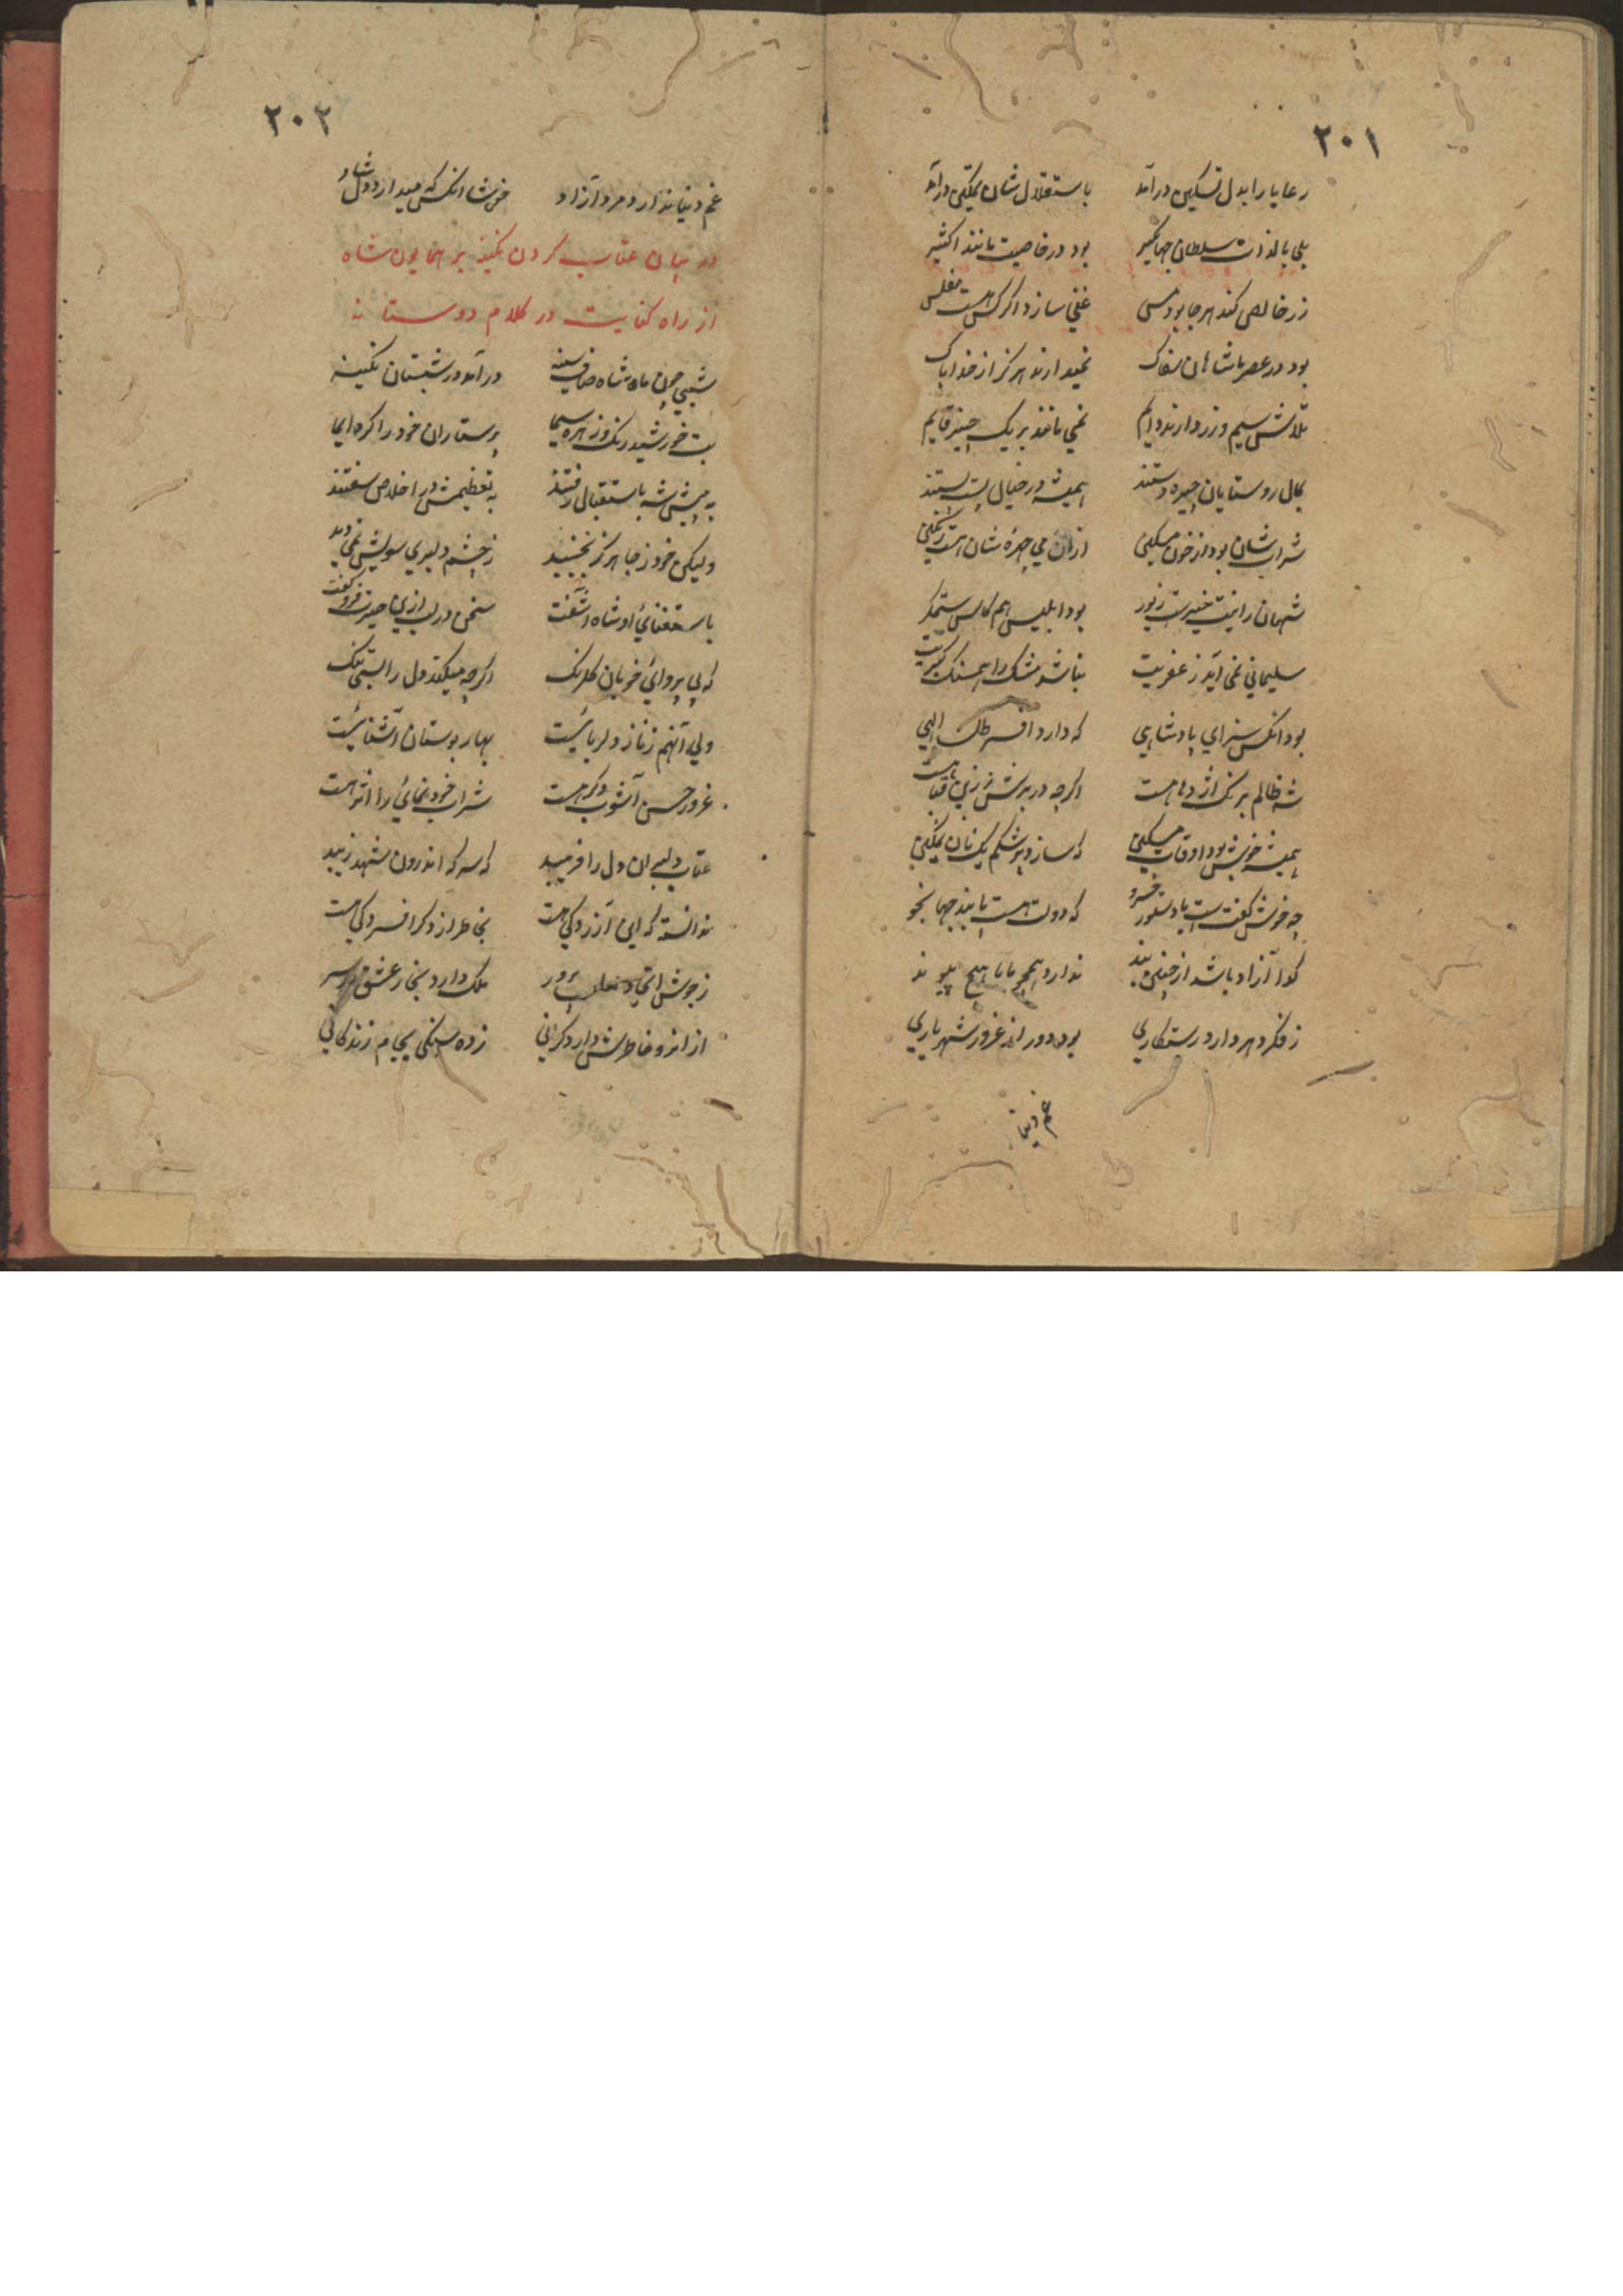 ۲۰۱
رعایا را بدل تسکین درآمد باستقلال شان تمکین درآمد
بلی بالذات سلطان جهانگیر بود در خاصیت مانند اکثیر
زر خالص کند هر جا بود مس غنی سازد اگر کس هست مفلس
بود در عصر ما شاهان سفاک نمیدارند هرگز از خدا باک
تلاش سیم و زر دارند دایم نمی مانند بر یک چیز قایم
بمال روستایان چیره دستند همیشه در خیال پست پستند
شراب شان بود از خون مسکین ازان می چهرهٔ شان هست رنگین
شهان را نیت خیرست زیور بود ابلیس هم کالس ستمگر
سلیمانی نمی آید ز عفریت نباشد مشک را همسنگ کبریت
بود آنکس سزای پادشاهی که دارد افسر ظل الهی
شه ظالم برنگ اژدها هست اگرچه در برش زرین قبا هست
همیشه خوش بود اوقات مسکین که سازد پر شکم یک نان نمکین
چه خوش گفت است با دستور خسرو که دولت هست پابند جهانجو
گدا آزاد باشد از چنین بند ندارد همچو ما با هیچ پیوند
ز فکر دهر دارد رستکاری بود دور از غرور شهریاری
غم دنیا
۲۰۲
غم دنیا ندارد مرد آزاد خوشا آنکس که میدارد دل شاد
در بیان عتاب کردن نگینه بر همایون شاه
از راه کنایت در کلام دوستانه
شبی چون ماه شاه صاف سینه درآمد در شبستان نگینه
بت خورشید رنگ و زهره سیما پرستاران خود را کرد ایما
به پیش شه باستقبال رفتند به تعظیمش در اخلاص سفتند
ولیکن خود ز جا هرگز نجنبید ز چشم دلبری سویش نمی دید
باستغنائی او شاه آشفت سخن در لب ازین حیرت فرو گفت
که بی پروائی خوبان گلرنگ اگرچه میکند دل را بسی تنگ
ولی آنهم ز ناز دلربائیست بهار بوستان آشنائیست
غرور حسن آشوب دگر هست شراب خودنمائی را اثر هست
عتاب دلبران دل را فریبد که سرکه اندرون شهد زیبد
ندانسته که این آزردگی هست بخاطر از دگر افسردگی هست
ز جوش اتحاد پرور ملک دارد بخار عشق در سر
از انرو خاطرش دارد گرانی زده سنگی بجام زندگانی